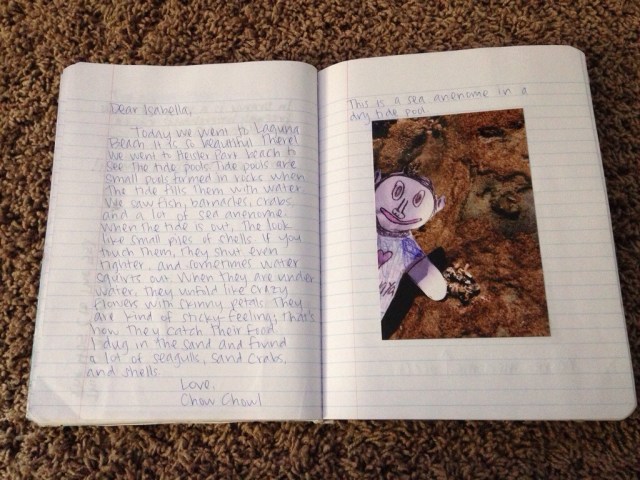 Dear Isabella,
Today we went to Laguna
Beach. It is so beautiful there!
We went to Heisler Park beach to
see the tide pools. Tide pools are
small pools formed in rocks when
the tide fills them with water.
We saw fish, barnacles, crabs
and a lot of sea anenome.
When the tide is out, the look
like small piles of shells. If you
touch them, they shut even
tighter, and sometimes water
squirts out. When they are under
water, they unfold like crazy
flowers with skinny petals. They
are kind of sticky feeling; that's
how they catch their food.
I dug in the sand and found
a lot of seagulls, sand crabs,
and shells.
Love,
Chow Chowl
This is a sea anenome in a
dry tide pool.